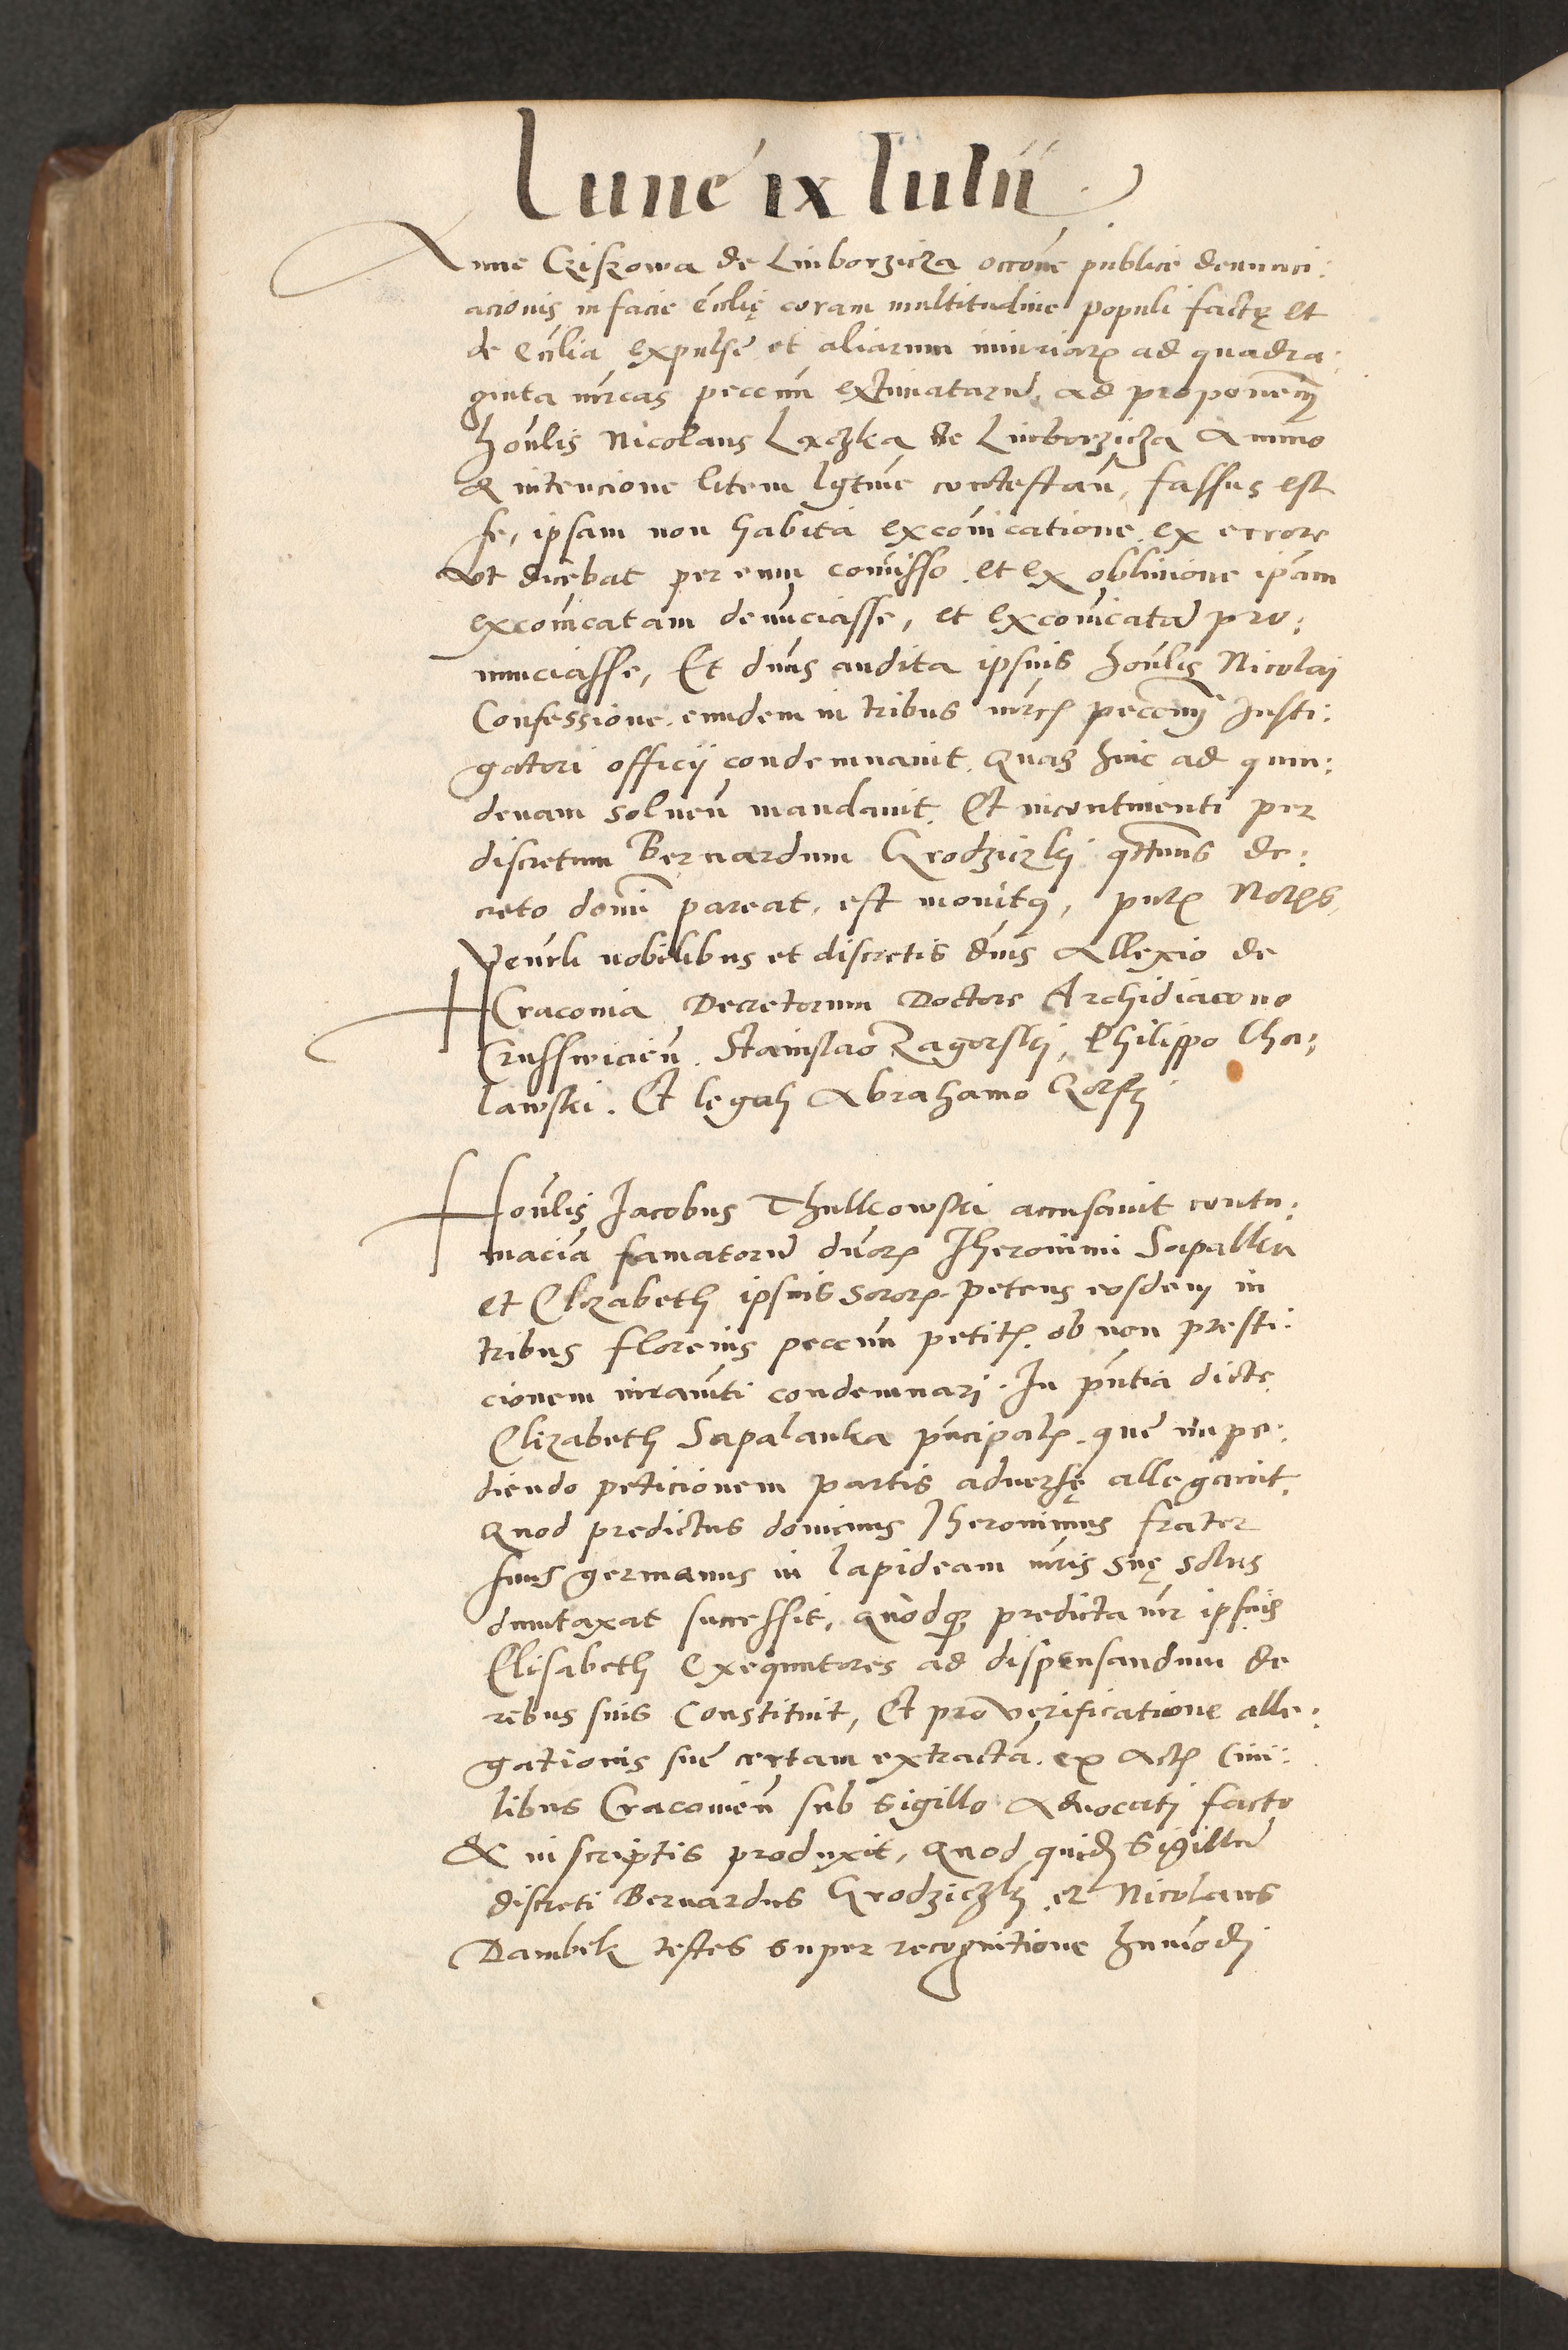 Lune ix Iulii
Anne Cziskowa de Luborzicza occōne publice denunci:
acionis in facie ecclię coram multitudine populi factę et
de ecclia expulse et aliarum iniuriarꝫ ad quadra:
ginta mrcas peccun extimatarū. ad proponenm
honlis Nicolaus Laczka de Luborzicza Animo
& intencione litem lgtme contestan, fassus est
se, ipsam non habita excōicatione ex errore
Vt dicebat per eum comisso. et ex obliuione ipam
excōicatam denunciasse, et excōicatā pro:
nunciasse, Et dnus audita ipsius honlis Nicolai
Confessione. eundem in tribus mrcis peccunij Insti:
gatori officij condemnauit. Quas hinc ad quin:
denam soluen mandauit. Et incontinenti per
discretum Bernardum Grodziczki qtenus de:
creto domi pareat. est monitus, pntꝫ Notꝫs
Venrli nobilibus et discretis dnis Allexio de
Craconia Decretorum Doctore Archidiacono
Crusswicien. Stanislao Zagorskij, Philippo Cha:
lawski. Et legali Abrahamo Gorskj
Honlis Iacobus Thulkowski accusauit contu:
maciā famatorū duorꝫ Iheronimi Sapallka
et Elizabeth ipsius sororꝫ petens eosdem in
tribus florenis peccun petitꝫ. ob non presti:
cionem iuramti condemnari. In pntia dicte
Elizabeth Sapalanka pncipalꝫ. que impe:
diendo peticionem partis aduersę allegauit
Quod predictus dominus Iheronimus frater
suus germanus in lapideam mris suę solus
duntaxat successit, quodqꝫ predicta mr ipsius
Elisabeth Exequutores ad dispensandum de
rebus suis Constituit, Et pro verificatione alle:
gationis sue certam extractā. ex Actꝫ Ciui:
libus Cracouien sub sigillo Aduocati facto
& in scriptis produxit, Quod quidē Sigillū
discreti Bernardus Grodziczki et Nicolaus
Dambek testes super recognitione hnmodi